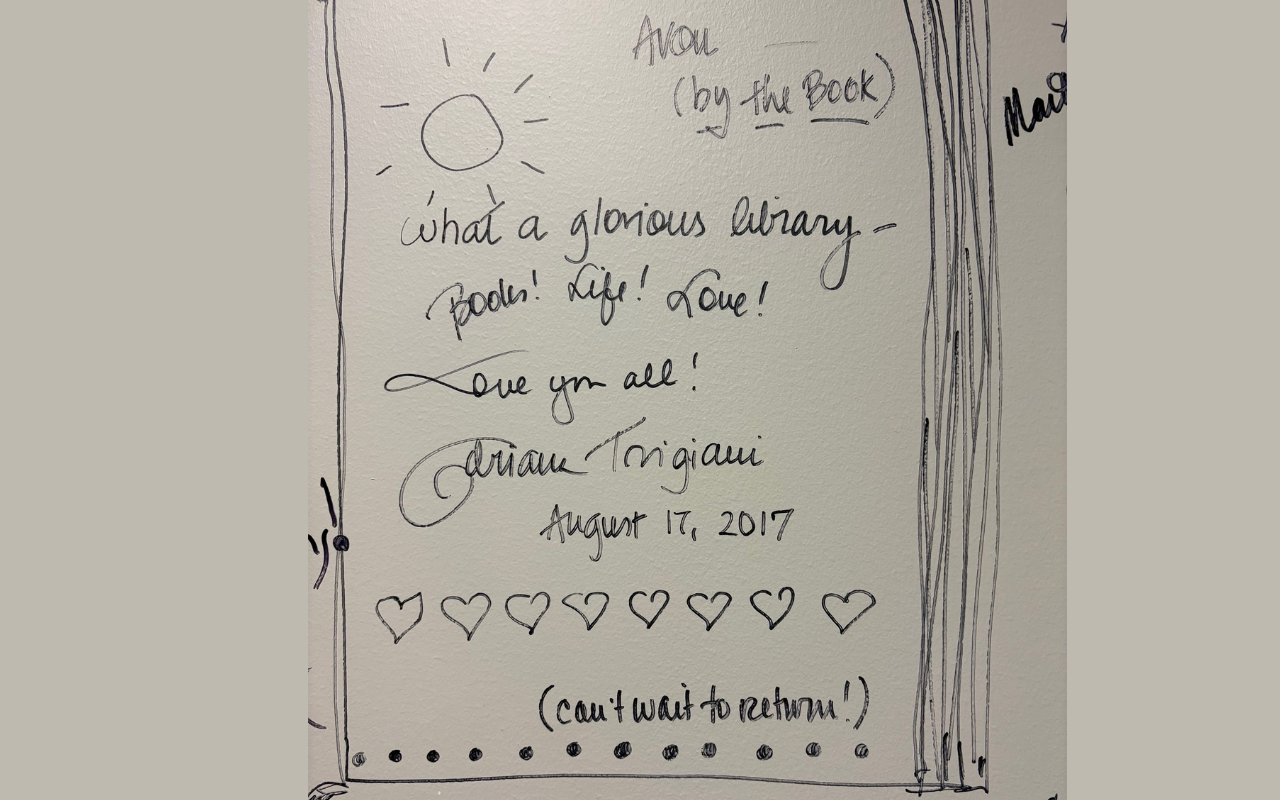 Avon —
(by the Book)
What a glorious library –
Books! Life! Love!
Love you all!
Adriana Trigiani
August 17, 2017
(can't wait to return!)